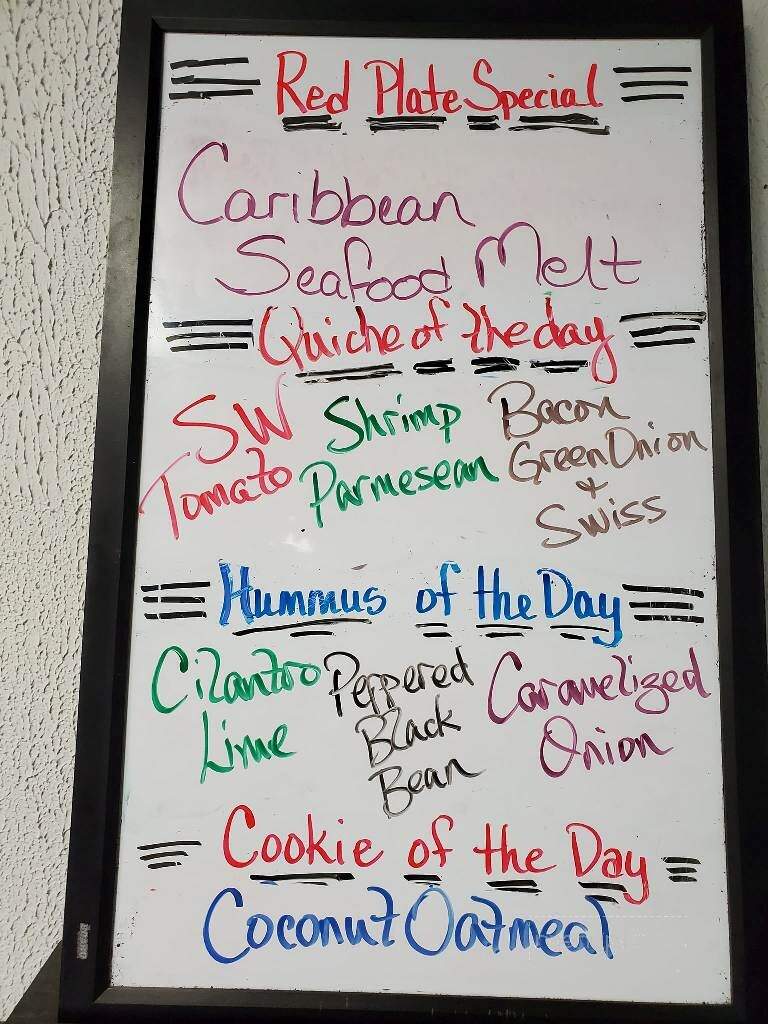 Red Plate Special
Caribbean
Seafood Melt
Quiche of the day
SW
Tomato
Shrimp
Parmesean
Bacon
Green Onion
&
Swiss
Hummus of the Day
Cilantro
Lime
Peppered
Black
Bean
Caramelized
Onion
Cookie of the Day
Coconut Oatmeal